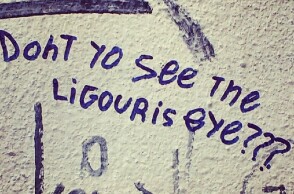 DoHT Yo See The
LiGOURis eye???